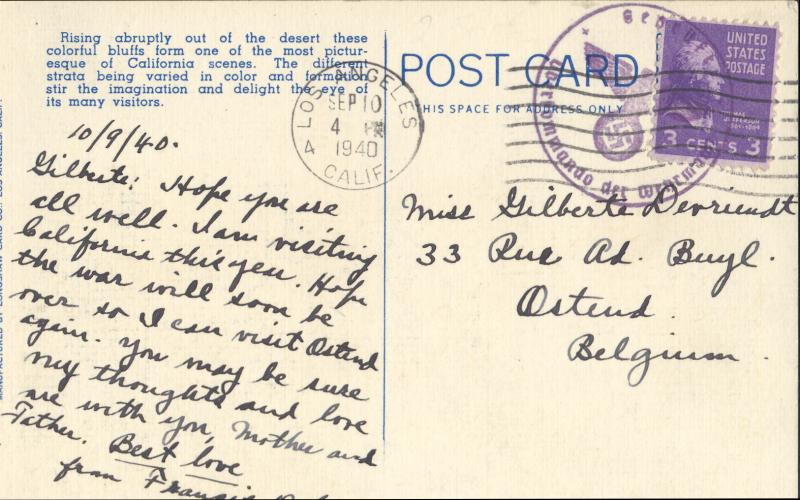 Rising abruptly out of the desert these
colorful bluffs form one of the most pictur-
esque of California scenes. The different
strata being varied in color and formation
stir the imagination and delight the eye of
its many visitors.
POST CARD
THIS SPACE FOR ADDRESS ONLY
LOS ANGELES
SEP 10
4 PM
1940
4 CALIF.
UNITED
STATES
POSTAGE
THOMAS
JEFFERSON
3 CENTS 3
Oberkommando der Wehrmacht
10/9/40.
Gilberte: Hope you are
all well. I am visiting
California this year. Hope
the war will soon be
over so I can visit Ostend
again. You may be sure
my thoughts and love
are with you, Mother and
Father. Best love
from
Miss Gilberte Devriendt
33 Rue Ad. Buyl.
Ostend.
Belgium.
MANUFACTURED BY LONGSHAW CARD CO., LOS ANGELES, CALIF.